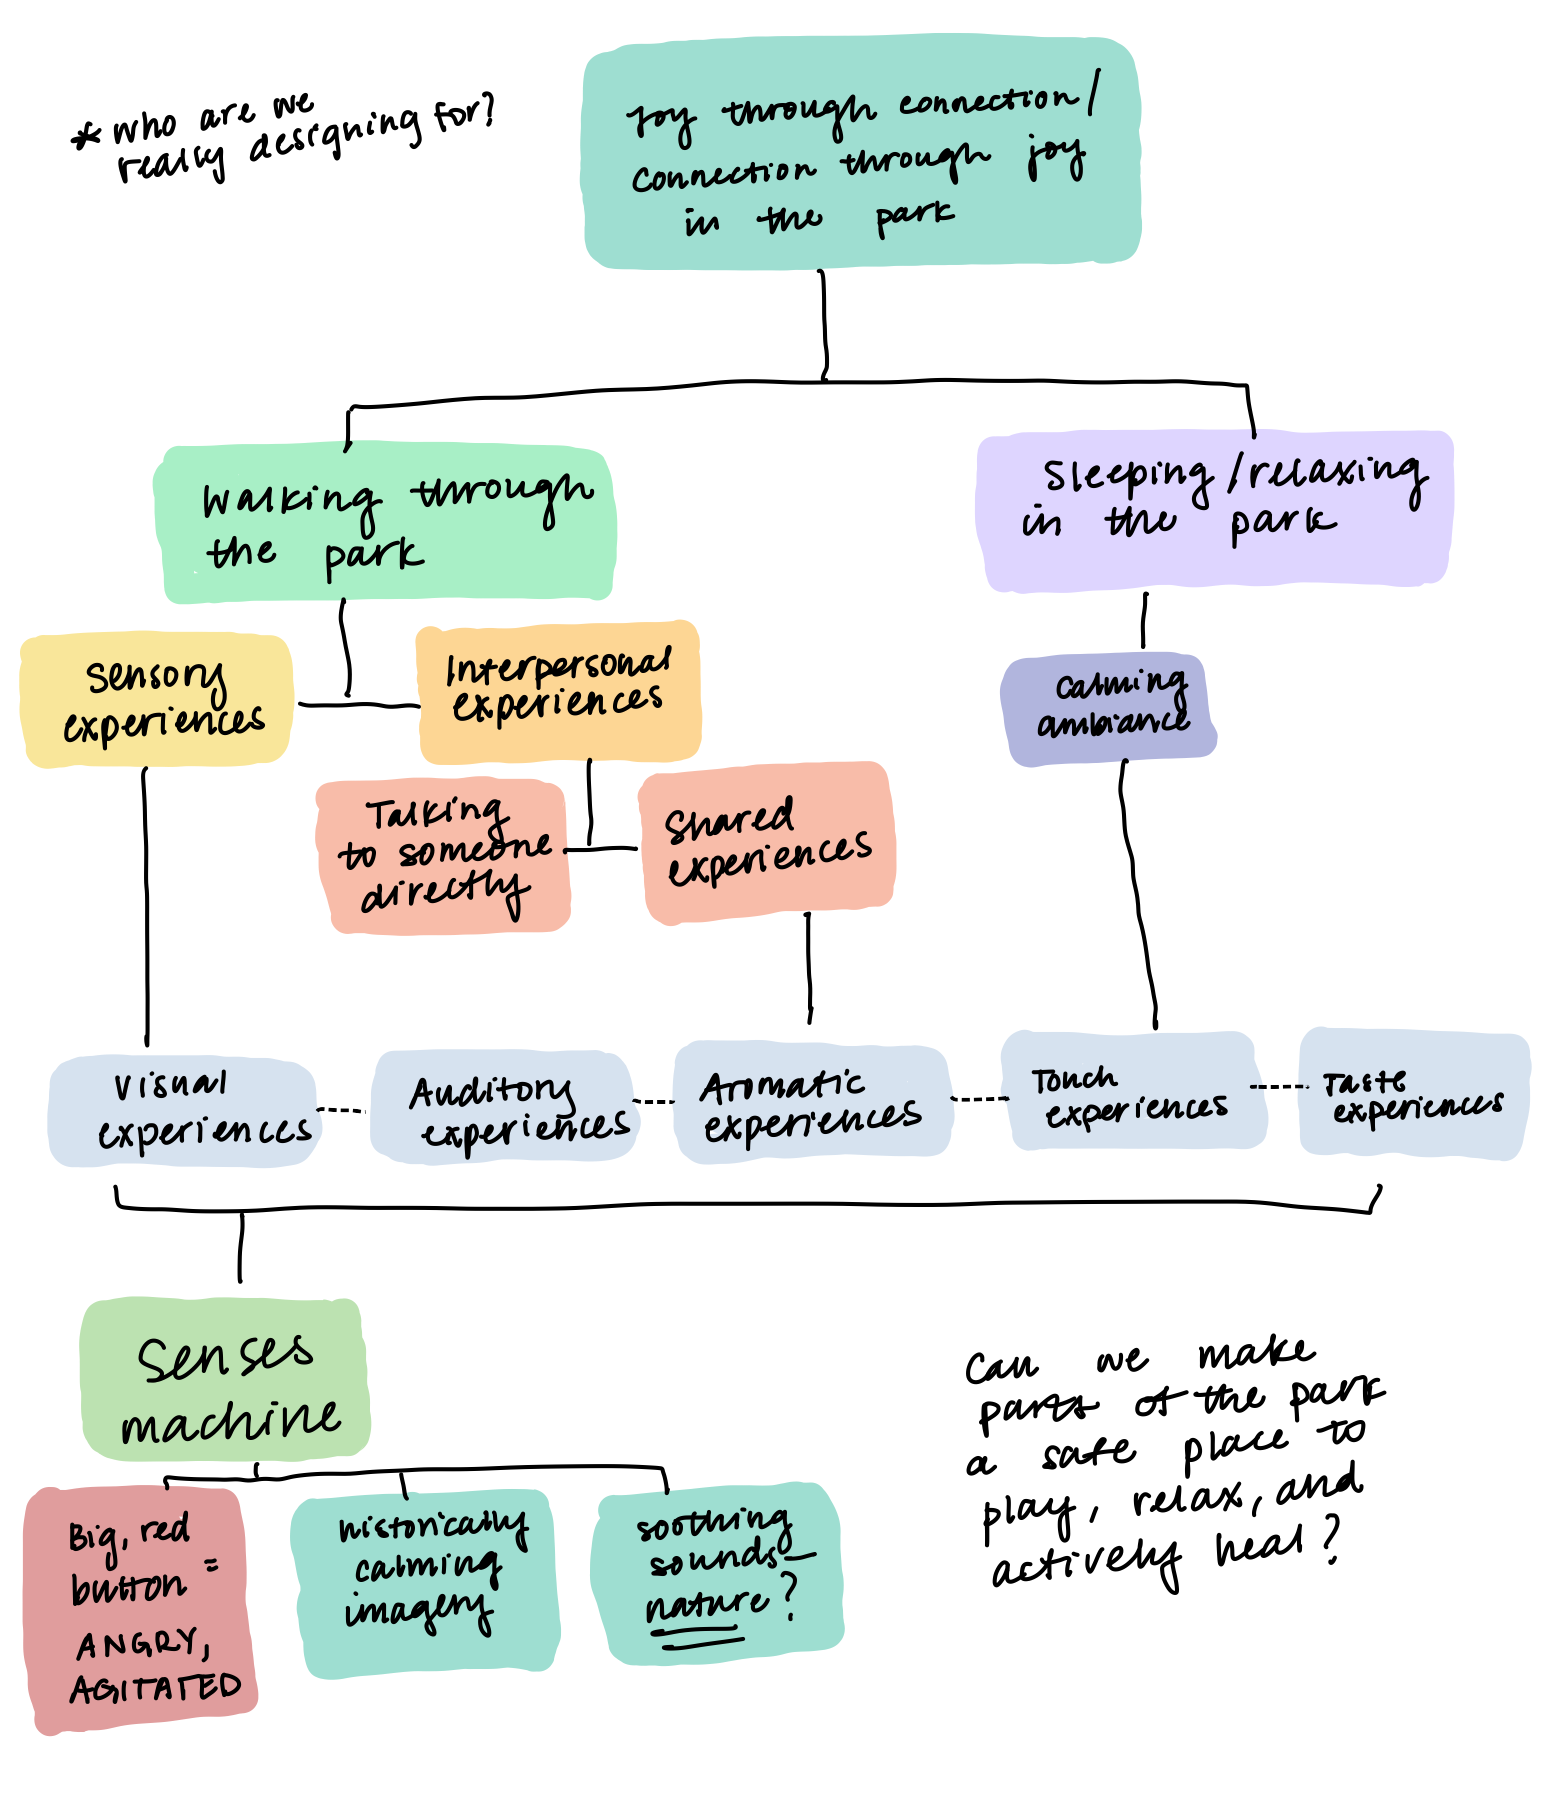 * who are we
really designing for?
Joy through connection/
connection through joy
in the park
Walking through
the park
Sleeping/relaxing
in the park
Sensory
experiences
Interpersonal
experiences
calming
ambiance
Talking
to someone
directly
Shared
experiences
Visual
experiences
Auditory
experiences
Aromatic
experiences
Touch
experiences
Taste
experiences
Senses
machine
Big, red
button =
ANGRY,
AGITATED
historically
calming
imagery
soothing
sounds—
nature?
Can we make
parts of the park
a safe place to
play, relax, and
actively heal?